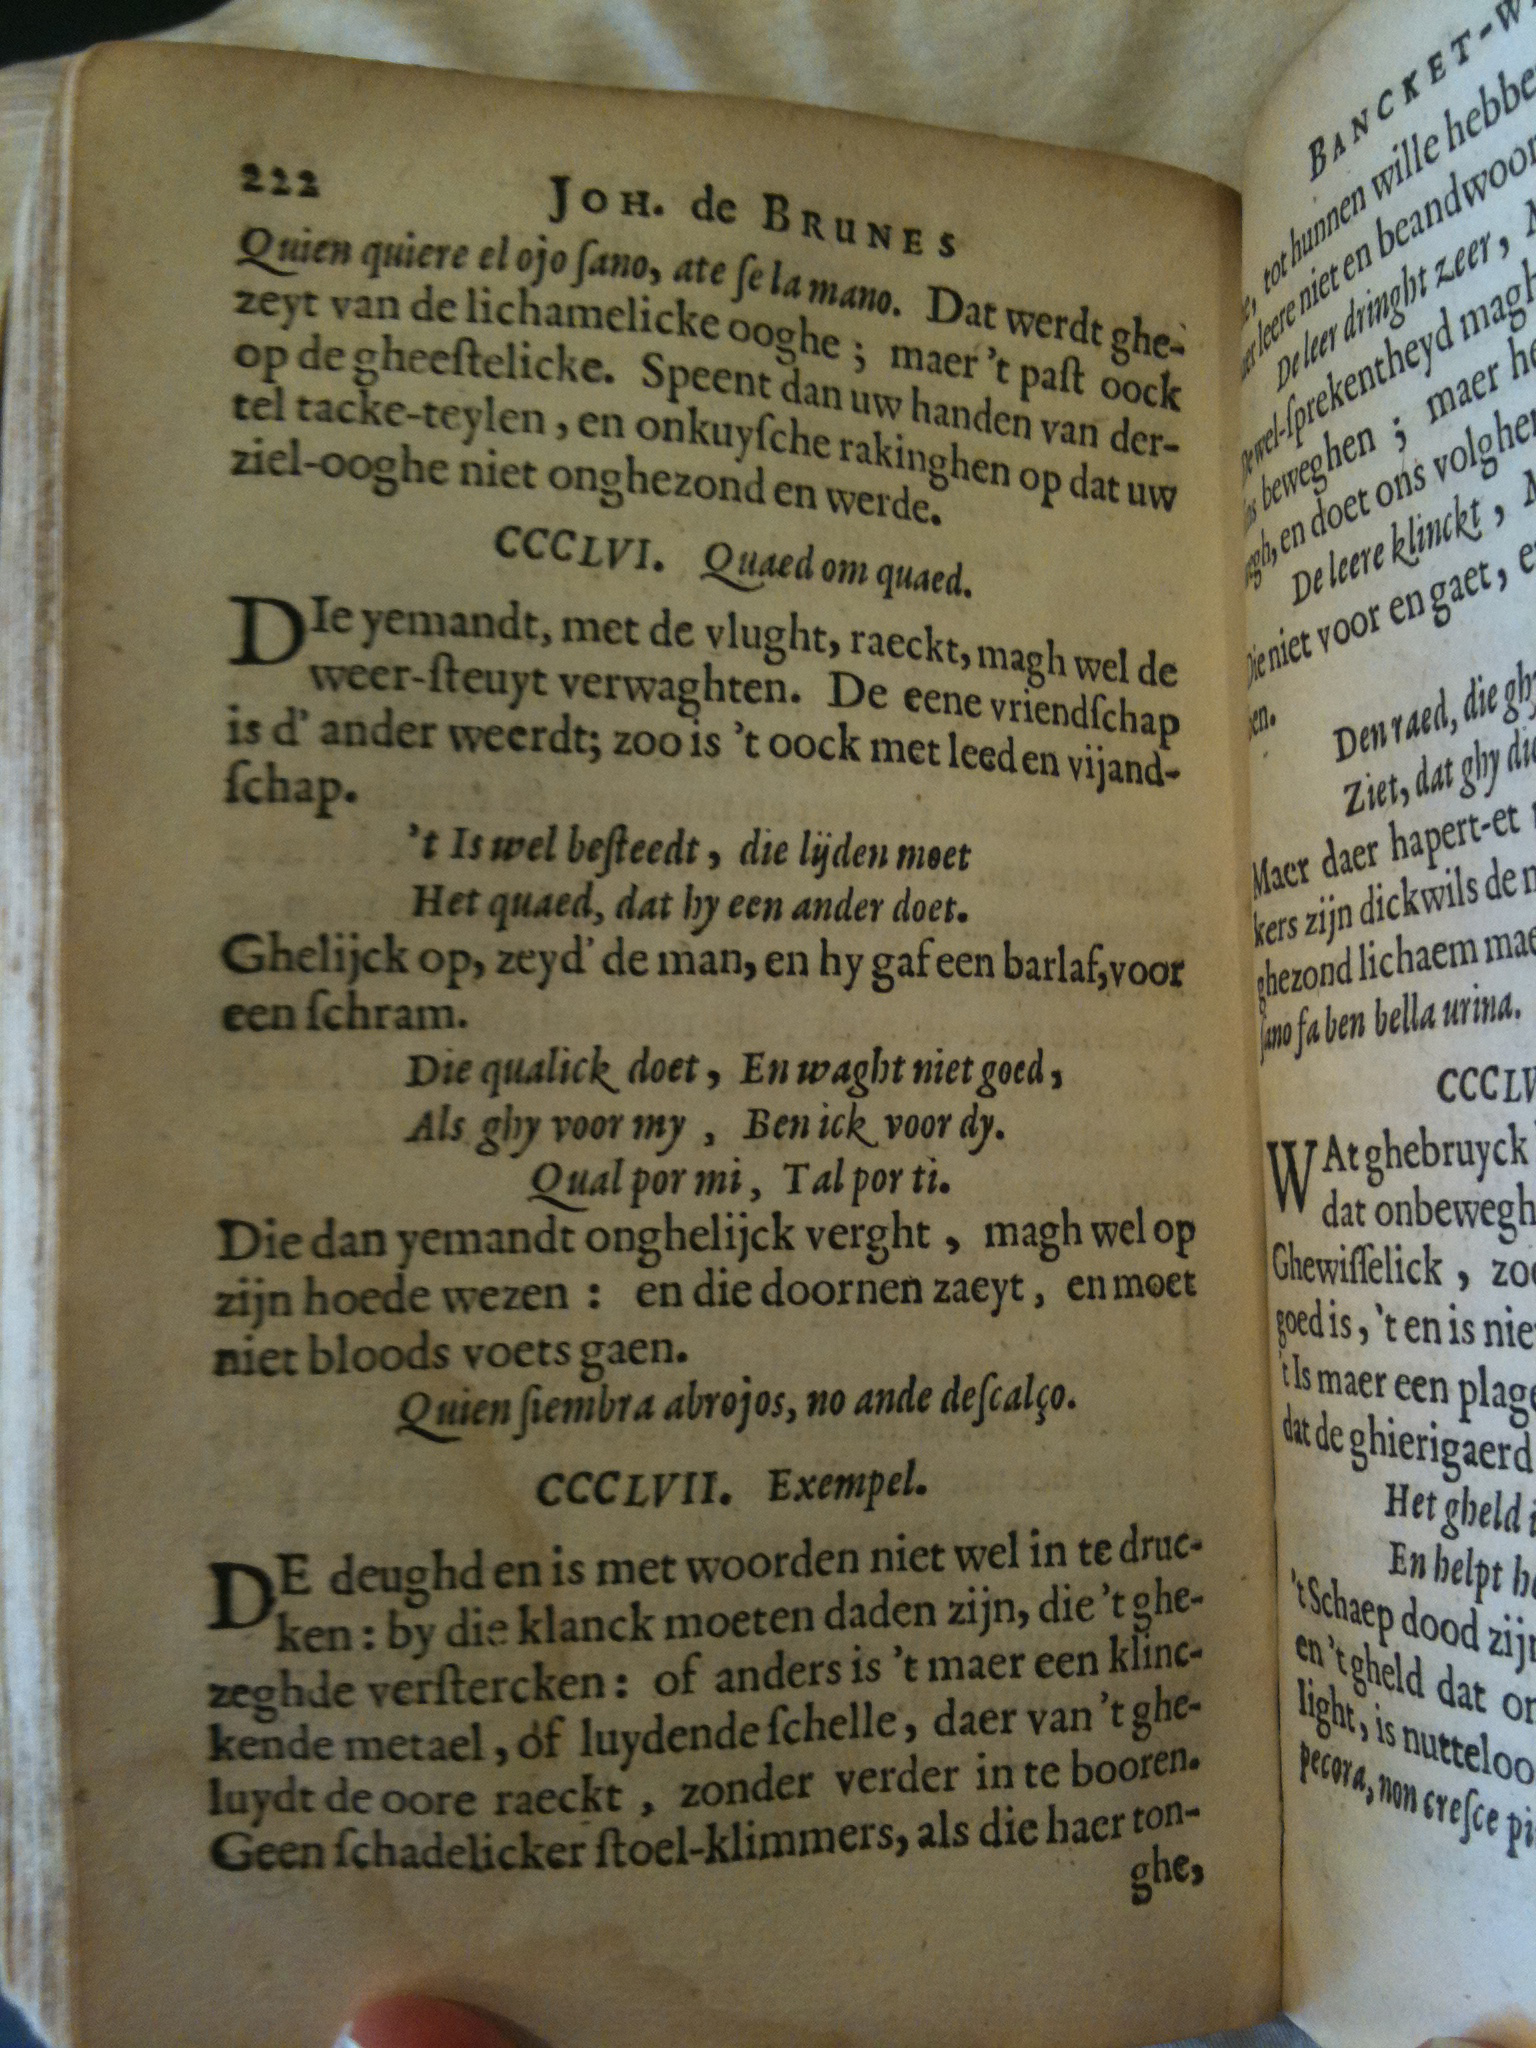 222 JOH. de BRUNES
Quien quiere el ojo ſano, ate ſe la mano. Dat werdt ghe-
zeyt van de lichamelicke ooghe; maer 't paſt oock
op de gheeſtelicke. Speent dan uw handen van der-
tel tacke-teylen, en onkuyſche rakinghen op dat uw
ziel-ooghe niet onghezond en werde.
CCCLVI. Quaed om quaed.
DIe yemandt, met de vlught, raeckt, magh wel de
weer-ſteuyt verwaghten. De eene vriendſchap
is d' ander weerdt; zoo is 't oock met leed en vijand-
ſchap.
't Is wel beſteedt, die lijden moet
Het quaed, dat hy een ander doet.
Ghelijck op, zeyd' de man, en hy gaf een barlaf, voor
een ſchram.
Die qualick doet, En waght niet goed,
Als ghy voor my, Ben ick voor dy.
Qual por mi, Tal por ti.
Die dan yemandt onghelijck verght, magh wel op
zijn hoede wezen: en die doornen zaeyt, en moet
niet bloods voets gaen.
Quien ſiembra abrojos, no ande deſcalço.
CCCLVII. Exempel.
DE deughd en is met woorden niet wel in te druc-
ken: by die klanck moeten daden zijn, die 't ghe-
zeghde verſtercken: of anders is 't maer een klinc-
kende metael, of luydende ſchelle, daer van 't ghe-
luydt de oore raeckt, zonder verder in te booren.
Geen ſchadelicker ſtoel-klimmers, als die haer ton-
ghe,
BANCKET-W
tot hunnen wille hebbe
leere niet en beandwoor
De leer dringht zeer,
wel-ſprekentheyd magh
beweghen; maer he
en doet ons volghe
De leere klinckt,
Die niet voor en gaet, e
Den raed, die ghy
Ziet, dat ghy die
Maer daer hapert-et
kers zijn dickwils de
ghezond lichaem mae
ſano fa ben bella urina.
CCCLV
WAt ghebruyck
dat onbewegh
Ghewiſſelick, zoo
goed is, 't en is nie
't Is maer een plage
dat de ghierigaerd
Het gheld i
En helpt he
't Schaep dood zijn
en 't gheld dat on
light, is nutteloo
pecora, non creſce pi